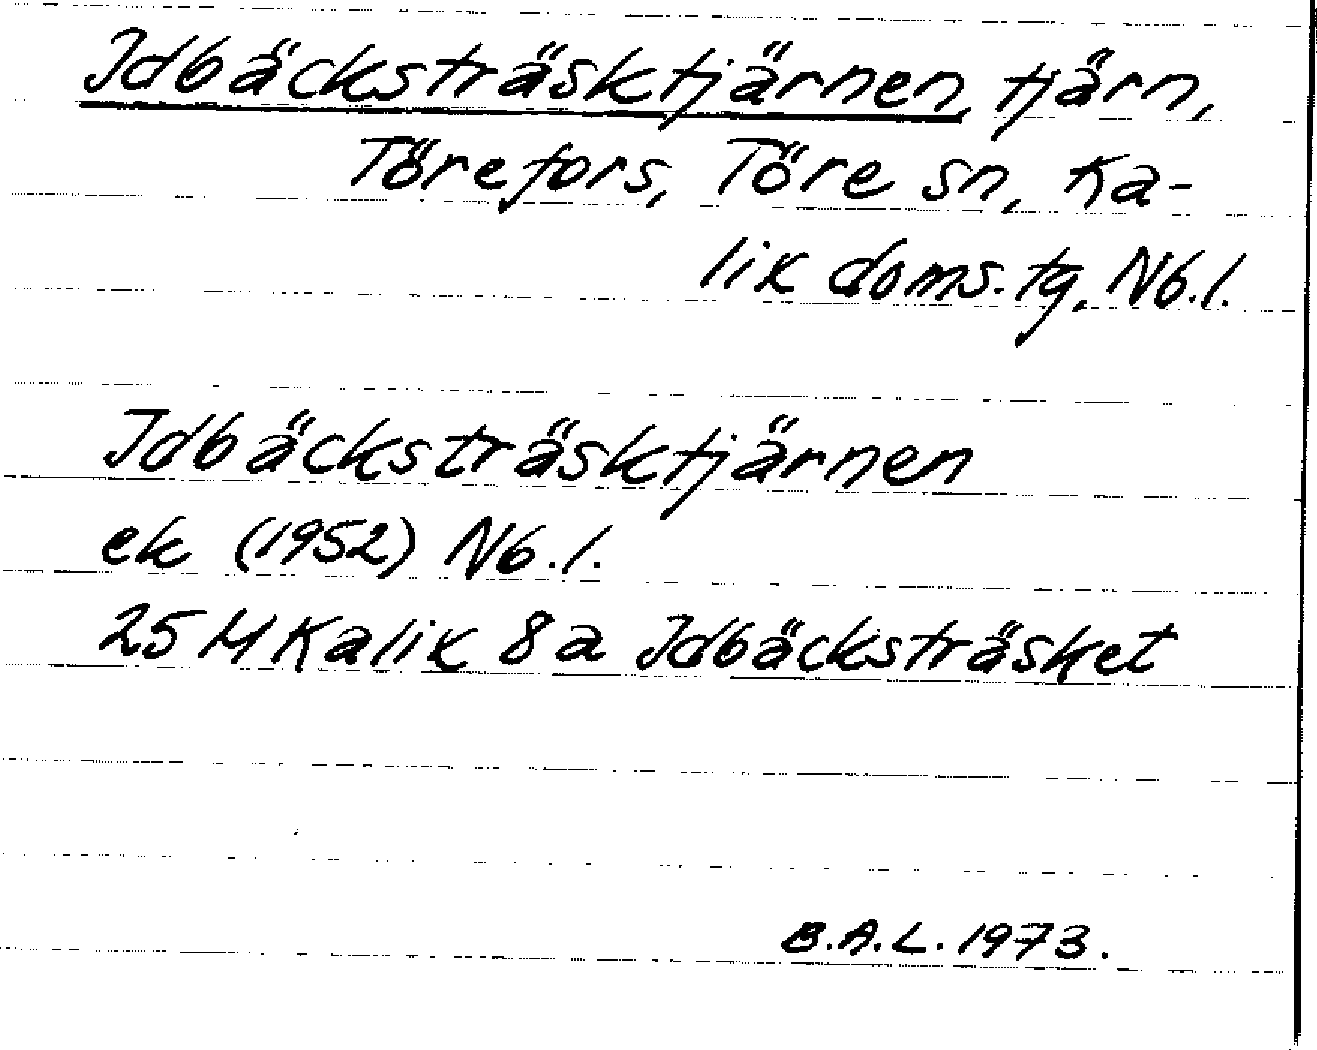 Idbäcksträsktjärnen, tjärn,
Törefors, Töre sn, Ka-
lix doms. tg, Nb.l.
Idbäcksträsktjärnen
ek (1952) Nb.l.
25 M Kalix 8 a Idbäcksträsket
B.A.L. 1973.